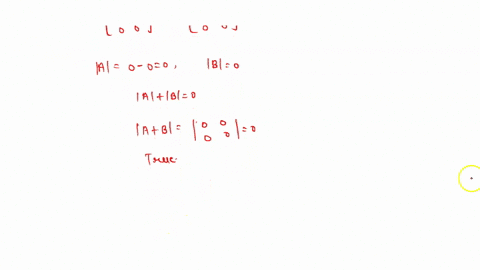 [ 0 0 ] [ 0 0 ]
|A| = 0-0=0, |B|=0
|A|+|B|=0
|A+B| = | 0 0 | =0
0 0
True